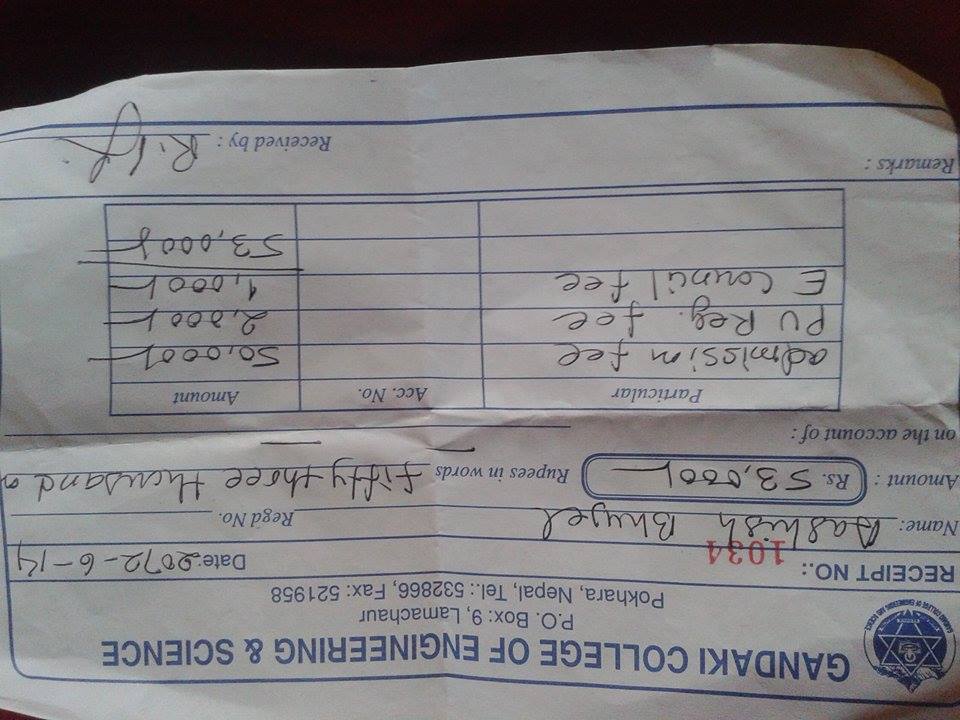 GANDAKI COLLEGE OF ENGINEERING & SCIENCE
P.O. Box: 9, Lamachaur
Pokhara, Nepal, Tel.: 532866, Fax: 521958
RECEIPT NO.: 1034 Date: 2072-6-14
Name: Aashish Bhujel Regd No.
Amount : Rs. 53,000/- Rupees in words fifty three thousand
on the account of :
Particular Acc. No. Amount
admission fee 50,000/-
PU Reg. fee 2,000/-
E Council fee 1,000/-
53,000/-
Remarks :
Received by :